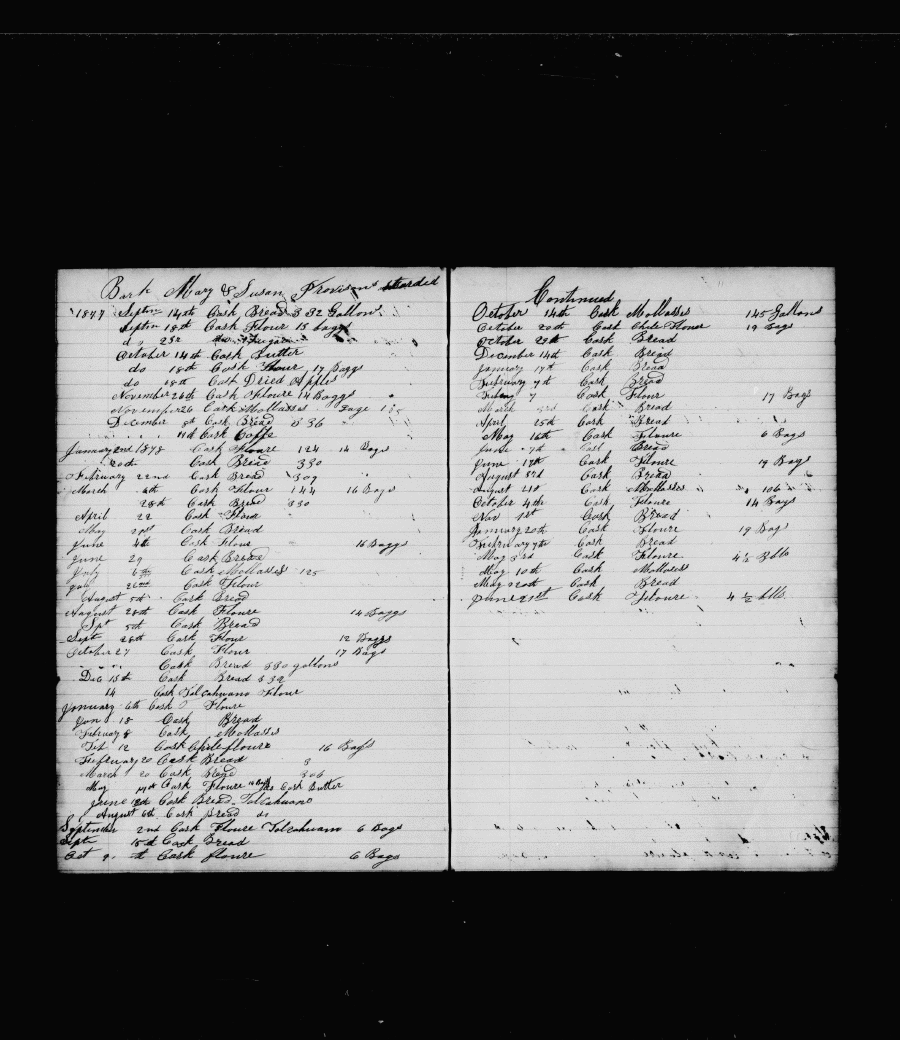 Bark Mary & Susan Provisions
1877 Septm 14th Cask Bread 332 Gallons
Septm 18th Cask Flour 15 bags
do 23d Sugar
October 14th Cask Butter
do 18th Cask Flour 17 Baggs
do 18th Cask Dried Apples
November 26th Cask Floure 14 Baggs
November 26 Cask Mollasses
December 8th Cask Bread 336
11d Cask Coffe
January 2nd 1878 Cask Floure 124 14 Bags
20th Cask Bread 330
February 22nd Cask Bread 309
March 6th Cask Flour 144 16 Bags
28th Cask Bread 330
April 22 Cask Flour
May 29th Cask Bread
June 4th Cask Flour 16 Baggs
June 29 Cask Bread
July 6th Cask Mollasses 125
July 26th Cask Flour
August 5th Cask Bread
August 28th Cask Floure 14 Baggs
Spt 5th Cask Bread
Sept 28th Cask Flour 12 Baggs
October 27 Cask Flour 17 Bags
Cask Bread 330 gallons
Dec 15th Cask Bread 332
14 Cask Talcahuano Flour
January 6th Cask Floure
Jan 18 Cask Bread
February 8 Cask Mollasses
Feb 12 Cask Chilefloure 16 Bags
February 20 Cask Bread
March 20 Cask Bread 306
May 14th Cask Floure Cask Butter
June 18th Cask Bread Talcahuano
August 6th Cask Bread do
September 2nd Cask Floure Talcahuano 6 Bags
Sept 15th Cask Bread
Oct 9th Cask floure 6 Bags
Continued
October 14th Cask Mollasses 145 Gallons
October 20th Cask Chile Flour 19 Bags
October 29th Cask Bread
December 14th Cask Bread
January 17th Cask Bread
February 7th Cask Bread
7 Cask Flour 17 Bags
March 3rd Cask Bread
April 25th Cask Bread
May 16th Cask Floure 6 Bags
June 7th Cask Bread
June 19th Cask Floure 19 Bags
August 3rd Cask Bread
August Cask Mollasses 106
October 4th Cask Floure 14 Bags
Nov 1st Cask Bread
January 20th Cask Floure 19 Bags
February 7th Cask Bread
May 3rd Cask Floure 4½ Bbls
May 10th Cask Mollasses
May 20th Cask Bread
June 21st Cask Floure 4½ bbls